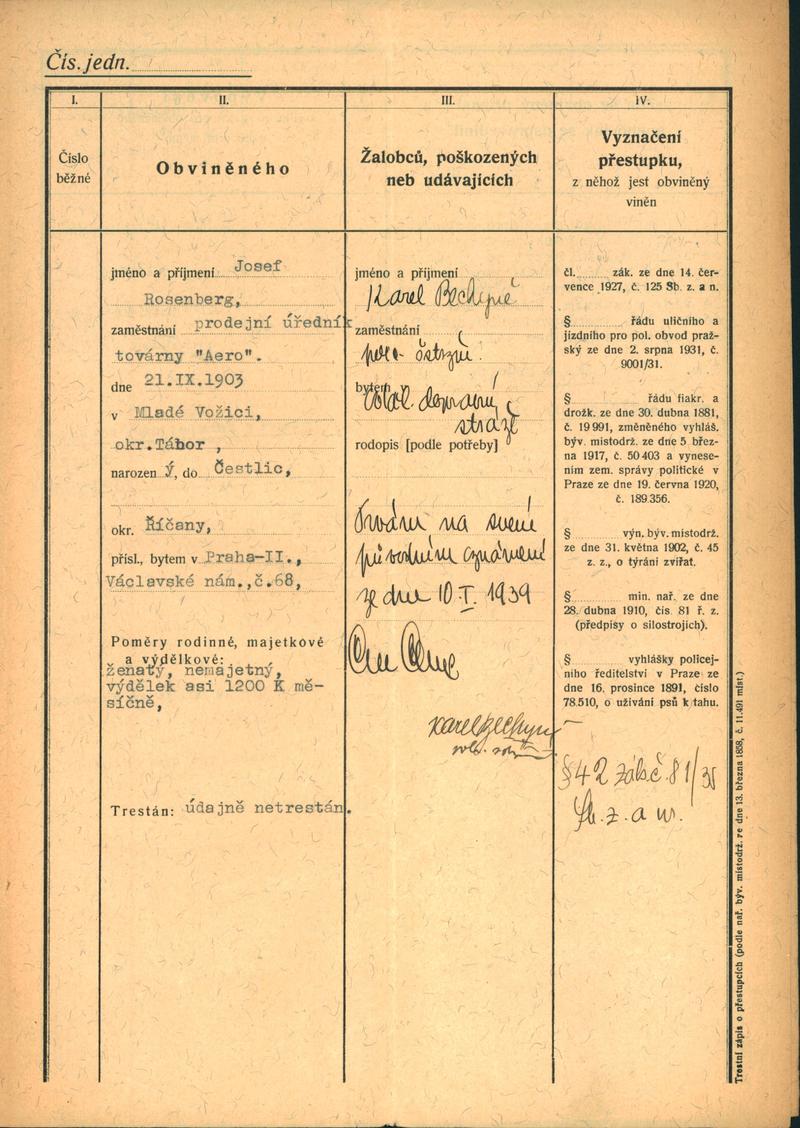 Čís. jedn.
I.
II.
III.
IV.
Číslo
běžné
Obviněného
Žalobců, poškozených
neb udávajících
Vyznačení
přestupku,
z něhož jest obviněný
viněn
jméno a příjmení Josef
Rosenberg,
zaměstnání prodejní úředník
továrny "Aero".
dne 21.IX.1903
v Mladé Vožici,
okr.Tábor ,
narozen ý, do Čestlic,
okr. Říčany,
přísl., bytem v Praha-II.,
Václavské nám.,č.68,
Poměry rodinné, majetkové
a výdělkové:
ženatý, nemajetný,
výdělek asi 1200 K mě-
síčně,
Trestán: údajně netrestán.
jméno a příjmení
Karel Bechyně
zaměstnání
pol. strážn.
bytem
odděl. dopravní
stráže
rodopis [podle potřeby]
Trvám na svém
původním oznámení
ze dne 10.I. 1939
Karel Bechyně
čl. zák. ze dne 14. čer-
vence 1927, č. 125 Sb. z. a n.
§ řádu uličního a
jízdního pro pol. obvod praž-
ský ze dne 2. srpna 1931, č.
9001/31.
§ řádu fiakr. a
drožk. ze dne 30. dubna 1881,
č. 19 991, změněného vyhláš.
býv. místodrž. ze dne 5 břez-
na 1917, č. 50 403 a vynese-
ním zem. správy politické v
Praze ze dne 19. června 1920,
č. 189.356.
§ výn. býv. místodrž.
ze dne 31. května 1902, č. 45
z. z., o týrání zvířat.
§ min. nař. ze dne
28. dubna 1910, čís. 81 ř. z.
(předpisy o silostrojích).
§ vyhlášky policej-
ního ředitelství v Praze ze
dne 16. prosince 1891, číslo
78.510, o užívání psů k tahu.
§ 42 zák. č. 81/35
Sb. z. a n.
Trestní zápis o přestupcích (podle nař. býv. místodrž. ze dne 13. března 1858, č. 11.491 míst.)